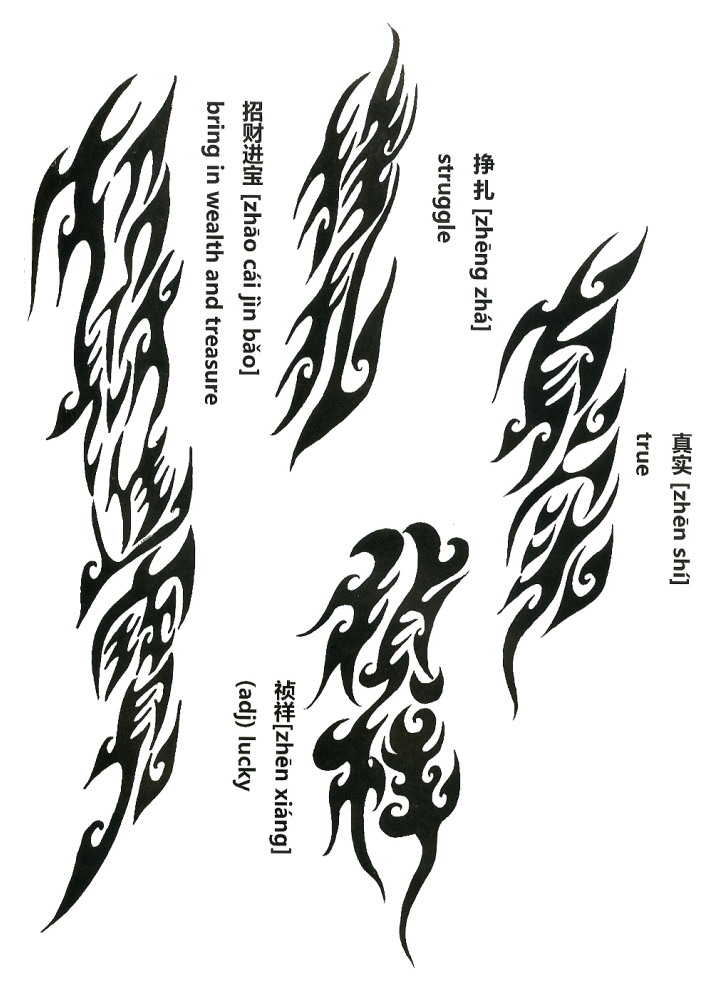 招财进宝 [zhāo cái jìn bǎo]
bring in wealth and treasure
挣扎 [zhēng zhá]
struggle
真实 [zhēn shí]
true
祯祥[zhēn xiáng]
(adj) lucky
招財進寶
挣扎
真实
祯祥